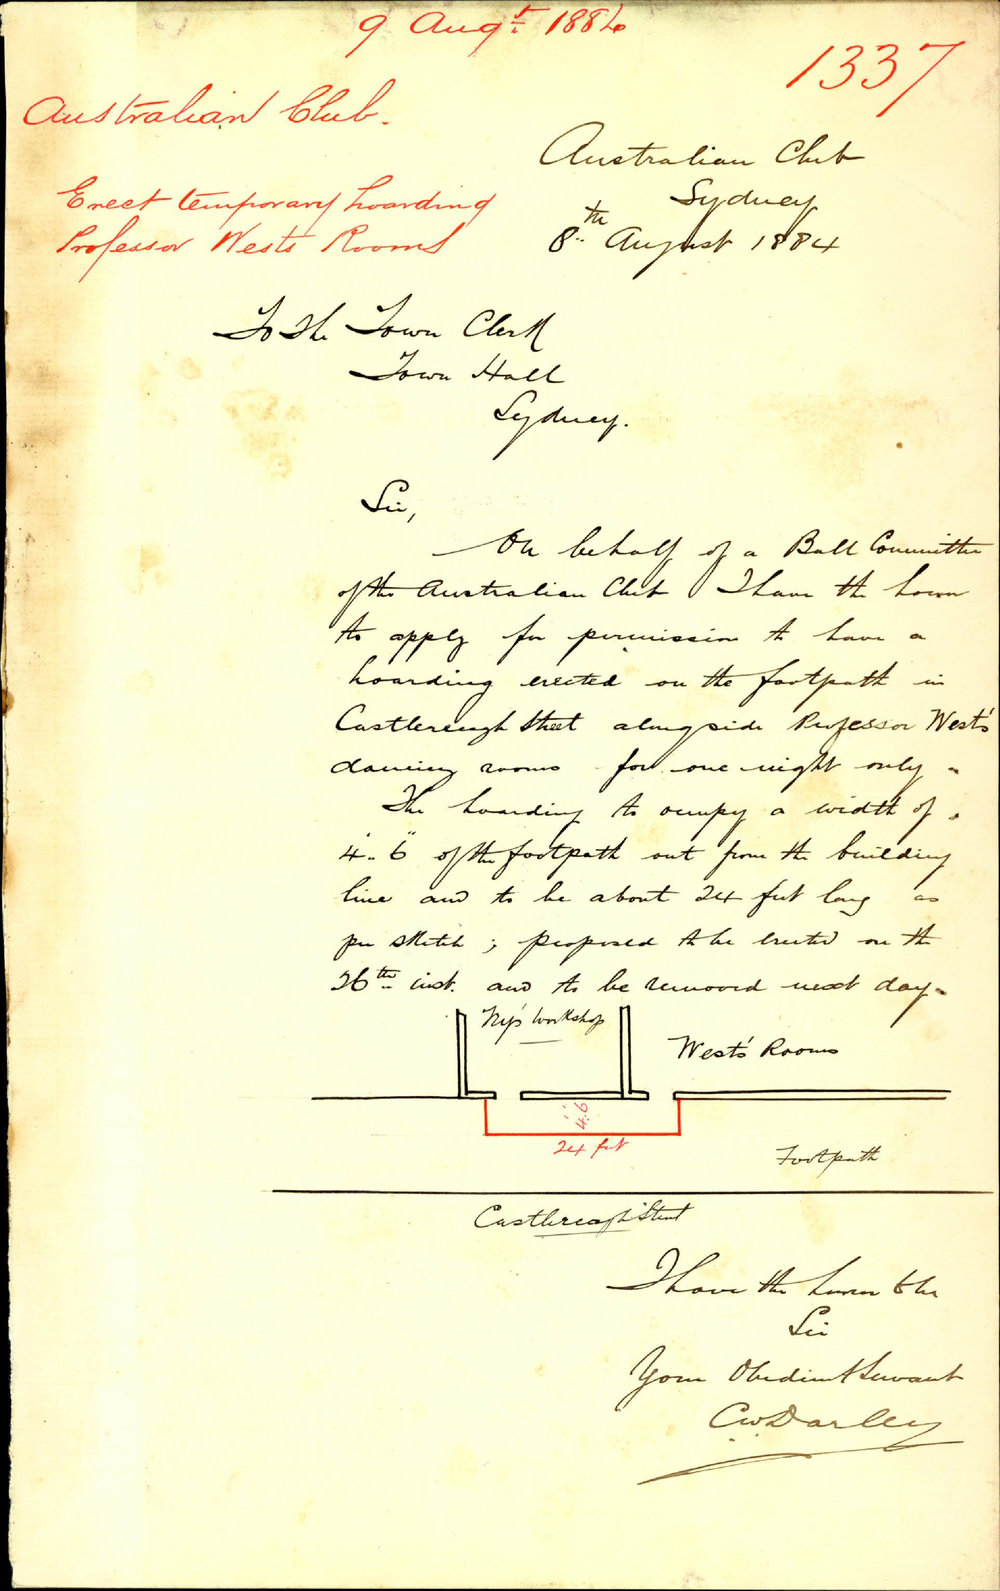 9 Augt 1884
1337
Australian Club.
Erect temporary hoarding
Professor Wests Rooms
Australian Club
Sydney
8th August 1884
To The Town Clerk
Town Hall
Sydney.
Sir,
On behalf of a Ball Committee
of the Australian Club I have the honor
to apply for permission to have a
hoarding erected on the footpath in
Castlereagh Street alongside Professor West's
dancing rooms for one night only -
The hoarding to occupy a width of
4'. 6" of the footpath out from the building
line and to be about 24 feet long as
per sketch ; proposed to be erected on the
26th inst. and to be removed next day -
Workshop
West's Rooms
4'.6"
24 feet
Footpath
Castlereagh Street
I have the honor to be
Sir
Your Obedient Servant
C.W. Darley